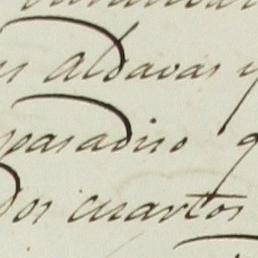 Aldavas y
paradiso q
Dos cuartos